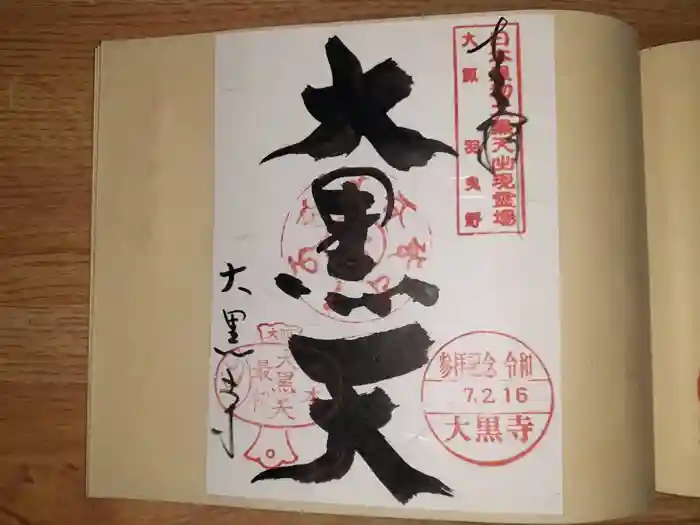 奉拝
日本最初大黒天出現霊場
大阪 羽曳野
大黒天
大黒寺
大黒天
日本
最初
参拝記念 令和
7.2.16
大黒寺